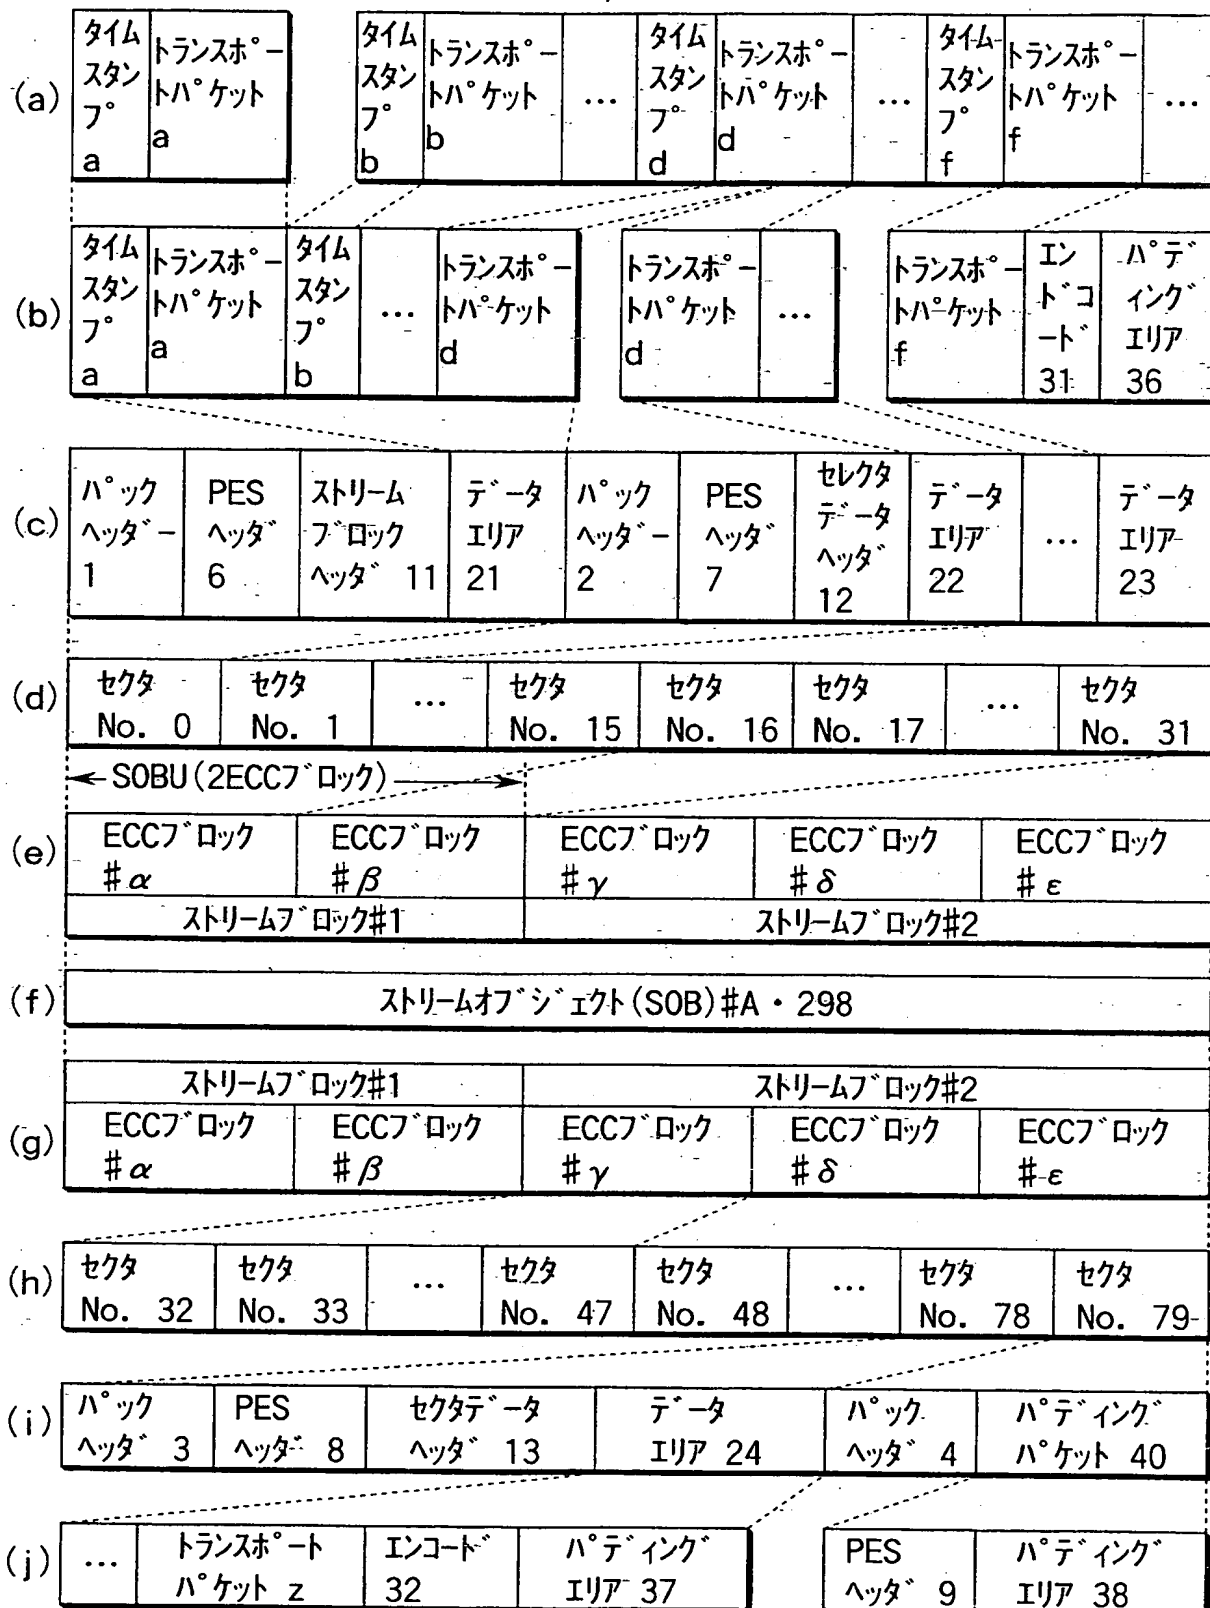 (a)
タイム
スタン
プ
a
トランスポー
トパケット
a
タイム
スタン
プ
b
トランスポー
トパケット
b
...
タイム
スタン
プ
d
トランスポー
トパケット
d
...
タイム
スタン
プ
f
トランスポー
トパケット
f
...
(b)
タイム
スタン
プ
a
トランスポー
トパケット
a
タイム
スタン
プ
b
...
トランスポー
トパケット
d
トランスポー
トパケット
d
...
トランスポー
トパーケット
f
エン
ドコ
ード
31
パデ
ィング
エリア
36
(c)
パック
ヘッダー
1
PES
ヘッダ
6
ストリーム
ブロック
ヘッダ 11
データ
エリア
21
パック
ヘッダー
2
PES
ヘッダ
7
セレクタ
データ
ヘッダ
12
データ
エリア
22
...
データ
エリア
23
(d)
セクタ
No. 0
セクタ
No. 1
...
セクタ
No. 15
セクタ
No. 16
セクタ
No. 17
...
セクタ
No. 31
SOBU(2ECCブロック)
(e)
ECCブロック
#α
ECCブロック
#β
ECCブロック
#γ
ECCブロック
#δ
ECCブロック
#ε
ストリームブロック#1
ストリームブロック#2
(f)
ストリームオブジェクト(SOB)#A・298
ストリームブロック#1
ストリームブロック#2
(g)
ECCブロック
#α
ECCブロック
#β
ECCブロック
#γ
ECCブロック
#δ
ECCブロック
#ε
(h)
セクタ
No. 32
セクタ
No. 33
...
セクタ
No. 47
セクタ
No. 48
...
セクタ
No. 78
セクタ
No. 79
(i)
パック
ヘッダ 3
PES
ヘッダ 8
セクタデータ
ヘッダ 13
データ
エリア 24
パック
ヘッダ 4
パディング
パケット 40
(j)
...
トランスポート
パケット z
エンコード
32
パディング
エリア 37
PES
ヘッダ 9
パディング
エリア 38